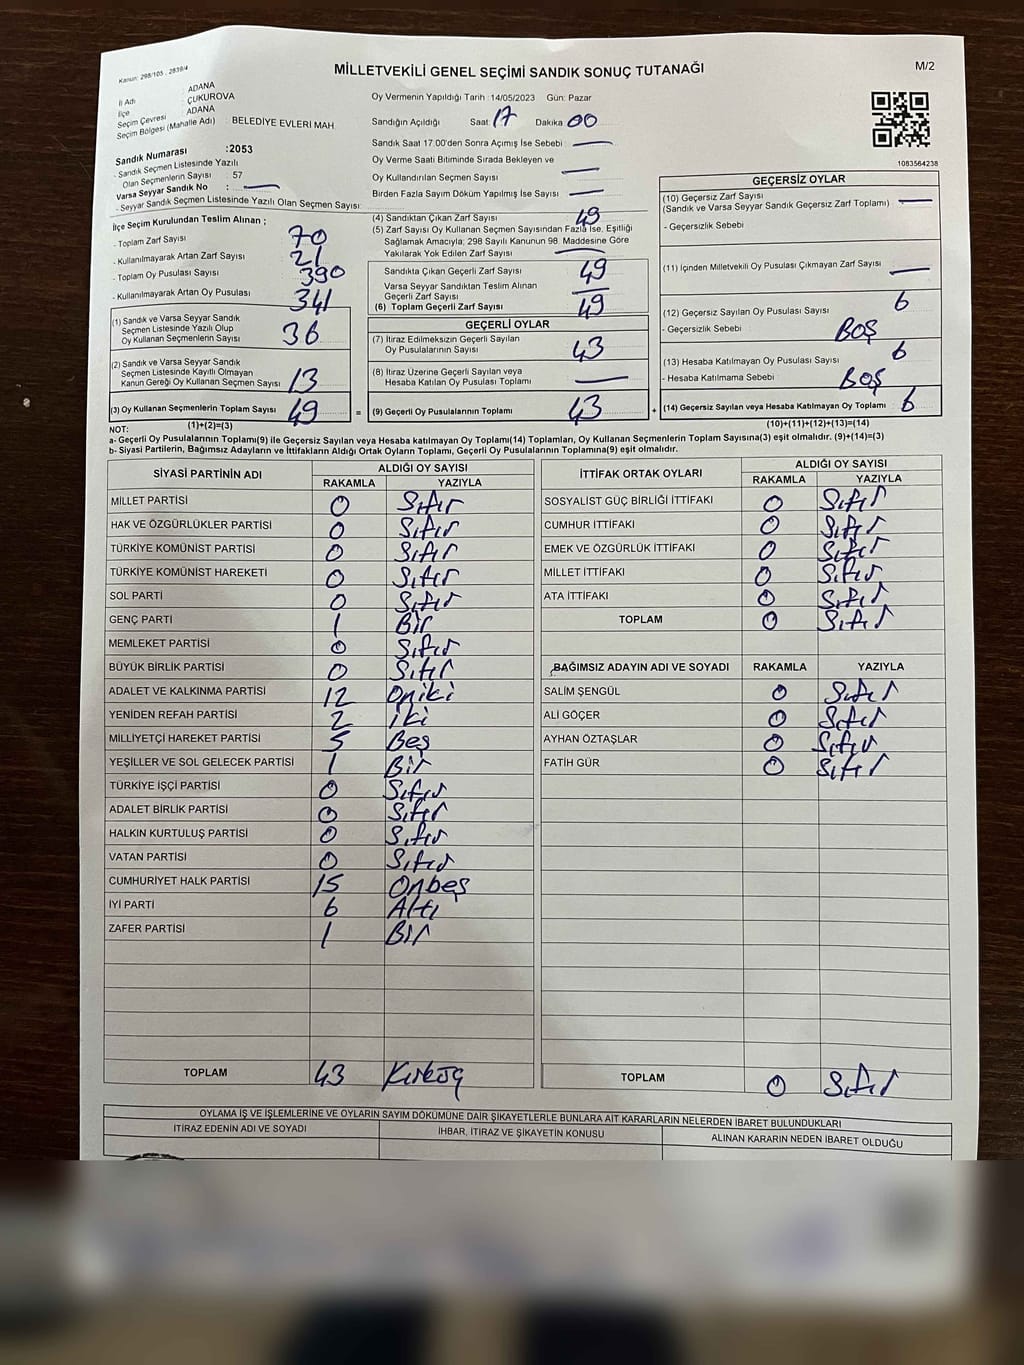 Kanun: 298/105 , 2839/4
MİLLETVEKİLİ GENEL SEÇİMİ SANDIK SONUÇ TUTANAĞI
M/2
İl Adı : ADANA
İlçe : ÇUKUROVA
Seçim Çevresi : ADANA
Seçim Bölgesi (Mahalle Adı) : BELEDİYE EVLERİ MAH
Sandık Numarası :2053
- Sandık Seçmen Listesinde Yazılı
Olan Seçmenlerin Sayısı : 57
Varsa Seyyar Sandık No : —
- Seyyar Sandık Seçmen Listesinde Yazılı Olan Seçmen Sayısı:
Oy Vermenin Yapıldığı Tarih :14/05/2023 Gün: Pazar
Sandığın Açıldığı Saat: 17 Dakika 00
Sandık Saat 17.00'den Sonra Açılmış İse Sebebi : —
Oy Verme Saati Bitiminde Sırada Bekleyen ve
Oy Kullandırılan Seçmen Sayısı —
Birden Fazla Sayım Döküm Yapılmış İse Sayısı : —
1083564238
İlçe Seçim Kurulundan Teslim Alınan ;
- Toplam Zarf Sayısı 70
- Kullanılmayarak Artan Zarf Sayısı 21
- Toplam Oy Pusulası Sayısı 390
- Kullanılmayarak Artan Oy Pusulası 341
(1) Sandık ve Varsa Seyyar Sandık
Seçmen Listesinde Yazılı Olup
Oy Kullanan Seçmenlerin Sayısı 36
(2) Sandık ve Varsa Seyyar Sandık
Seçmen Listesinde Kayıtlı Olmayan
Kanun Gereği Oy Kullanan Seçmen Sayısı 13
(3) Oy Kullanan Seçmenlerin Toplam Sayısı 49
(1)+(2)=(3)
(4) Sandıktan Çıkan Zarf Sayısı 49
(5) Zarf Sayısı Oy Kullanan Seçmen Sayısından Fazla İse, Eşitliği
Sağlamak Amacıyla; 298 Sayılı Kanunun 98. Maddesine Göre
Yakılarak Yok Edilen Zarf Sayısı —
Sandıkta Çıkan Geçerli Zarf Sayısı 49
Varsa Seyyar Sandıktan Teslim Alınan
Geçerli Zarf Sayısı —
(6) Toplam Geçerli Zarf Sayısı 49
GEÇERLİ OYLAR
(7) İtiraz Edilmeksizin Geçerli Sayılan
Oy Pusulalarının Sayısı 43
(8) İtiraz Üzerine Geçerli Sayılan veya
Hesaba Katılan Oy Pusulası Toplamı —
= (9) Geçerli Oy Pusulalarının Toplamı 43 +
GEÇERSİZ OYLAR
(10) Geçersiz Zarf Sayısı —
(Sandık ve Varsa Seyyar Sandık Geçersiz Zarf Toplamı)
- Geçersizlik Sebebi
(11) İçinden Milletvekili Oy Pusulası Çıkmayan Zarf Sayısı —
(12) Geçersiz Sayılan Oy Pusulası Sayısı 6
- Geçersizlik Sebebi BOŞ
(13) Hesaba Katılmayan Oy Pusulası Sayısı 6
- Hesaba Katılmama Sebebi BOŞ
(14) Geçersiz Sayılan veya Hesaba Katılmayan Oy Toplamı 6
(10)+(11)+(12)+(13)=(14)
NOT:
a- Geçerli Oy Pusulalarının Toplamı(9) ile Geçersiz Sayılan veya Hesaba katılmayan Oy Toplamı(14) Toplamları, Oy Kullanan Seçmenlerin Toplam Sayısına(3) eşit olmalıdır. (9)+(14)=(3)
b- Siyasi Partilerin, Bağımsız Adayların ve İttifakların Aldığı Ortak Oyların Toplamı, Geçerli Oy Pusulalarının Toplamına(9) eşit olmalıdır.
SİYASİ PARTİNİN ADI ALDIĞI OY SAYISI
RAKAMLA YAZIYLA
MİLLET PARTİSİ 0 Sıfır
HAK VE ÖZGÜRLÜKLER PARTİSİ 0 Sıfır
TÜRKİYE KOMÜNİST PARTİSİ 0 Sıfır
TÜRKİYE KOMÜNİST HAREKETİ 0 Sıfır
SOL PARTİ 0 Sıfır
GENÇ PARTİ 1 Bir
MEMLEKET PARTİSİ 0 Sıfır
BÜYÜK BİRLİK PARTİSİ 0 Sıfır
ADALET VE KALKINMA PARTİSİ 12 Oniki
YENİDEN REFAH PARTİSİ 2 iki
MİLLİYETÇİ HAREKET PARTİSİ 5 Beş
YEŞİLLER VE SOL GELECEK PARTİSİ 1 Bir
TÜRKİYE İŞÇİ PARTİSİ 0 Sıfır
ADALET BİRLİK PARTİSİ 0 Sıfır
HALKIN KURTULUŞ PARTİSİ 0 Sıfır
VATAN PARTİSİ 0 Sıfır
CUMHURİYET HALK PARTİSİ 15 Onbeş
İYİ PARTİ 6 Altı
ZAFER PARTİSİ 1 Bir
TOPLAM 43 Kırküç
İTTİFAK ORTAK OYLARI ALDIĞI OY SAYISI
RAKAMLA YAZIYLA
SOSYALİST GÜÇ BİRLİĞİ İTTİFAKI 0 Sıfır
CUMHUR İTTİFAKI 0 Sıfır
EMEK VE ÖZGÜRLÜK İTTİFAKI 0 Sıfır
MİLLET İTTİFAKI 0 Sıfır
ATA İTTİFAKI 0 Sıfır
TOPLAM 0 Sıfır
BAĞIMSIZ ADAYIN ADI VE SOYADI RAKAMLA YAZIYLA
SALİM ŞENGÜL 0 Sıfır
ALİ GÖÇER 0 Sıfır
AYHAN ÖZTAŞLAR 0 Sıfır
FATİH GÜR 0 Sıfır
TOPLAM 0 Sıfır
OYLAMA İŞ VE İŞLEMLERİNE VE OYLARIN SAYIM DÖKÜMÜNE DAİR ŞİKAYETLERLE BUNLARA AİT KARARLARIN NELERDEN İBARET BULUNDUKLARI
İTİRAZ EDENİN ADI VE SOYADI İHBAR, İTİRAZ VE ŞİKAYETİN KONUSU ALINAN KARARIN NEDEN İBARET OLDUĞU